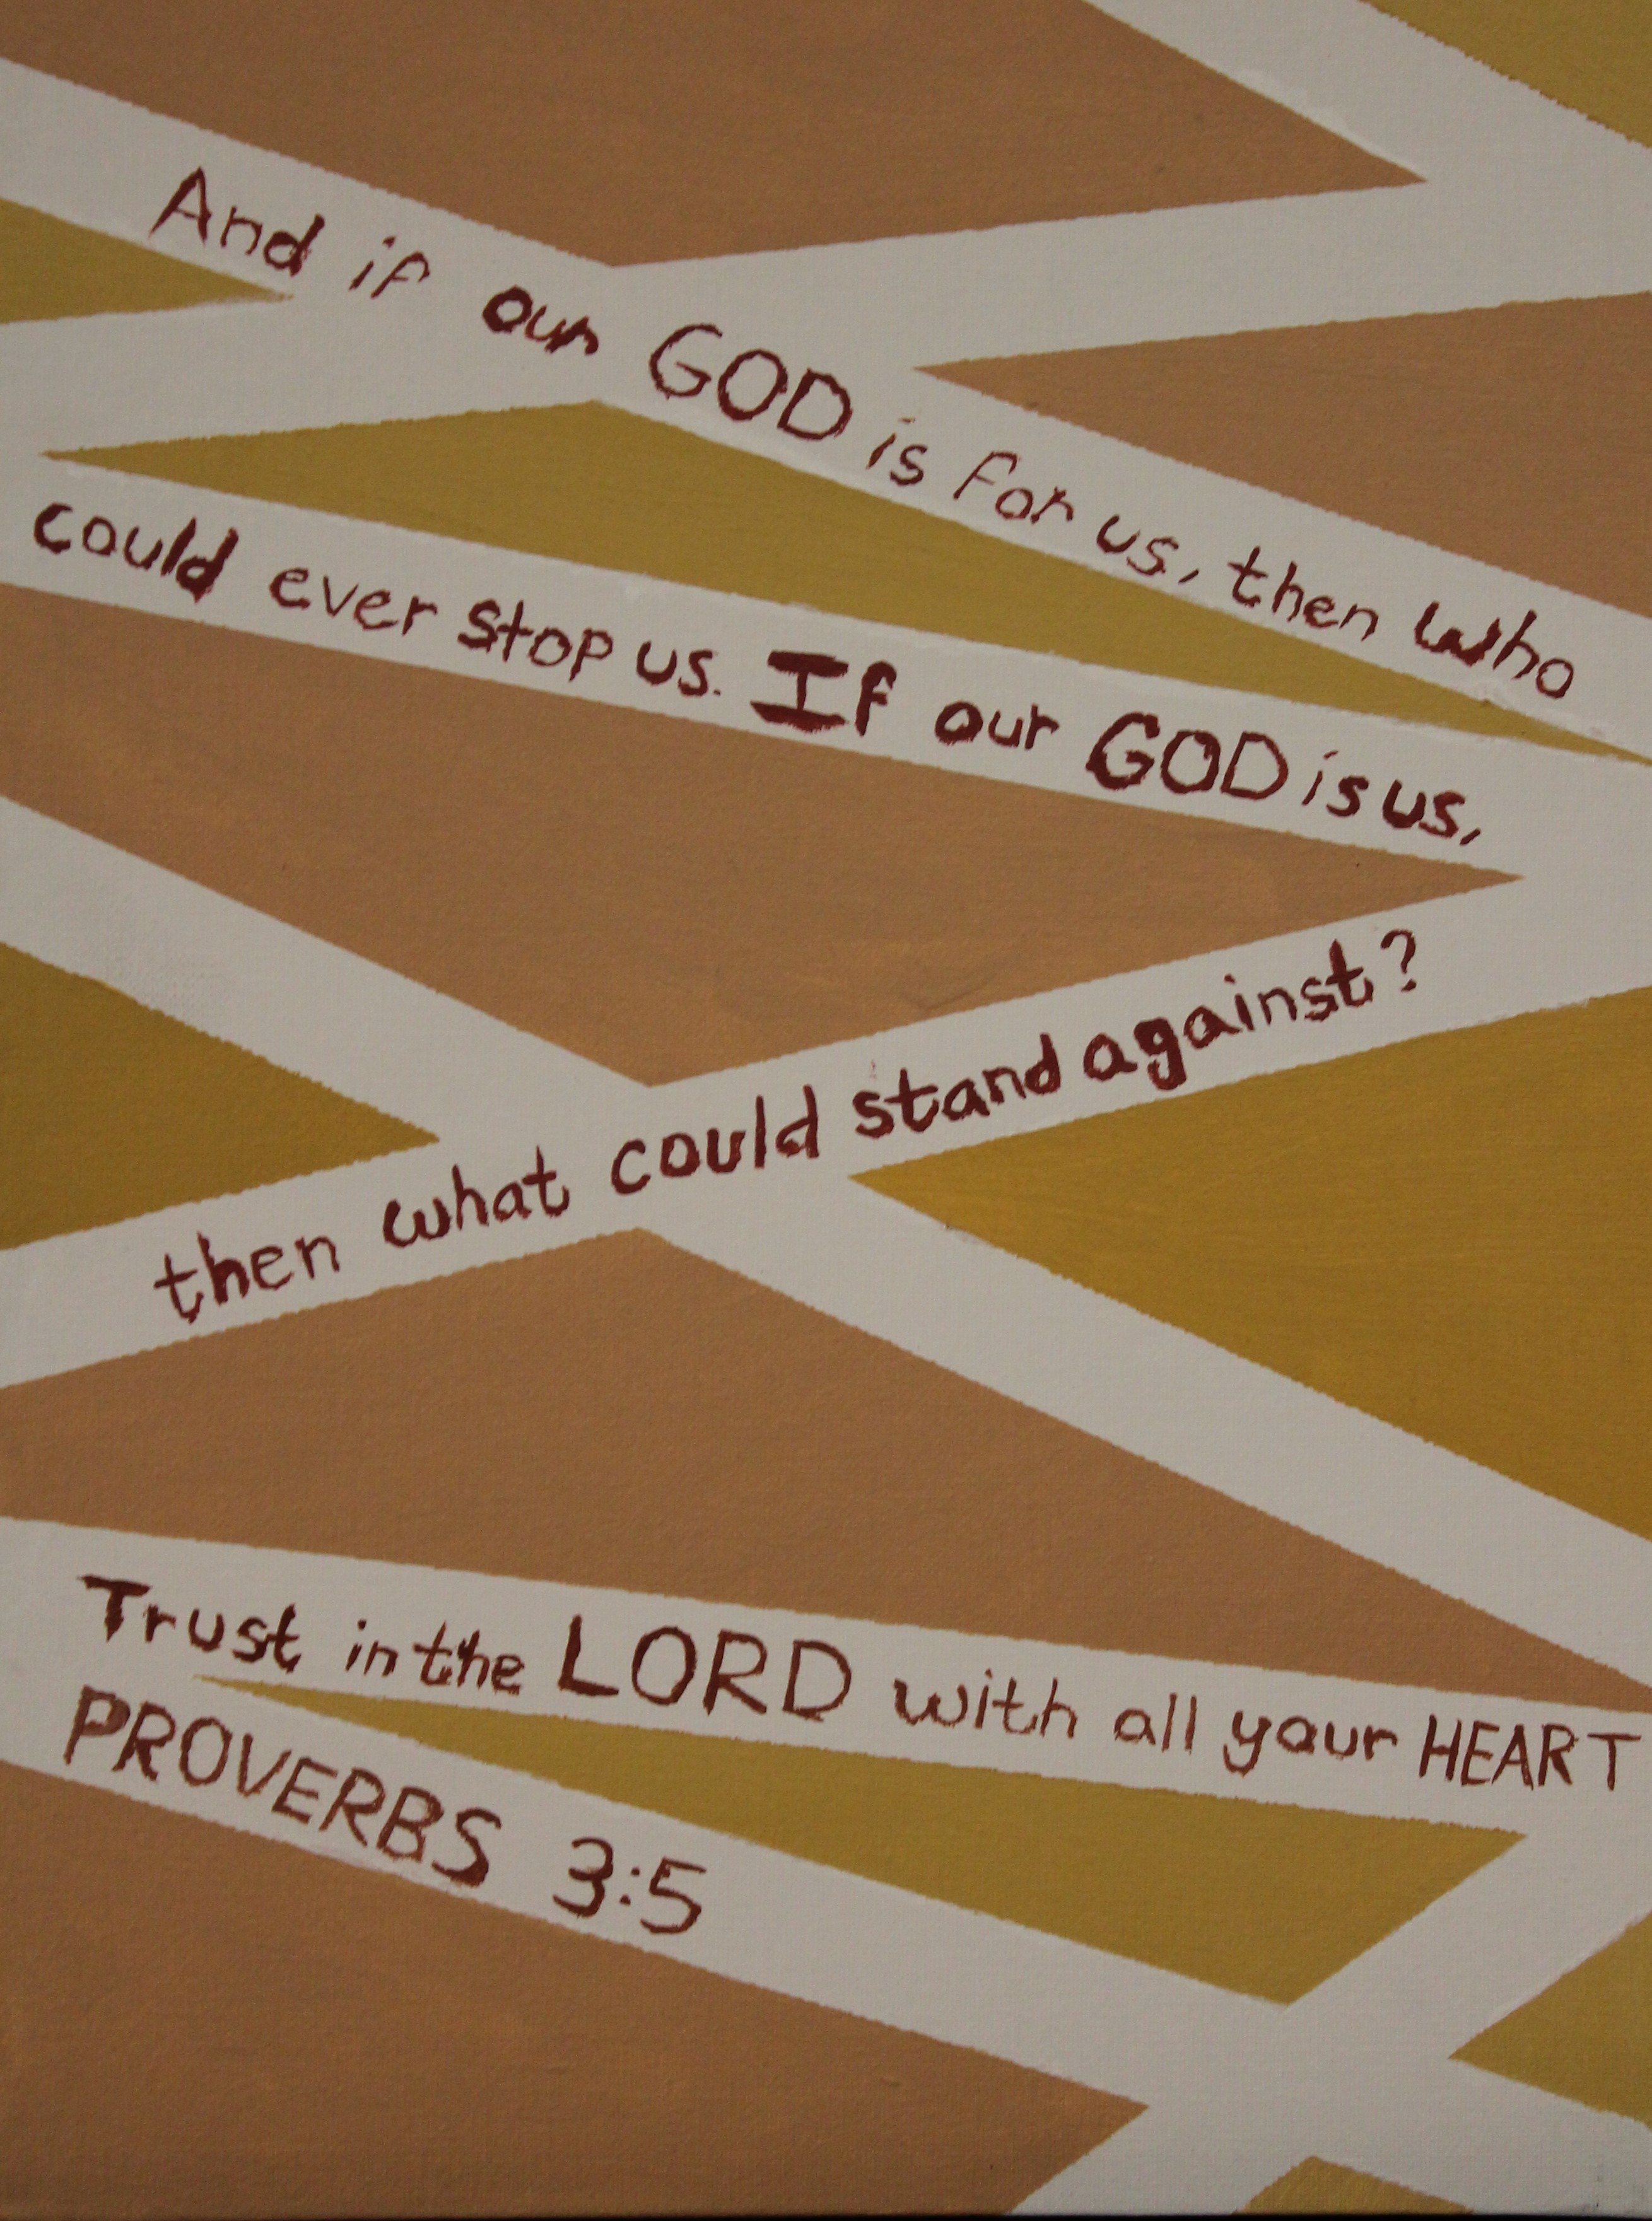 And if our GOD is for us, then who
could ever stop us. If our GOD is us,
then what could stand against?
Trust in the LORD with all your HEART
PROVERBS 3:5